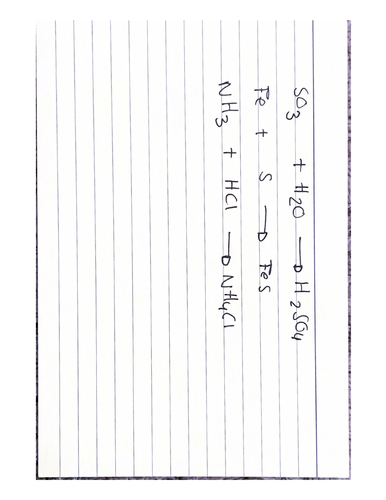 SO3 + H2O → H2SO4
Fe + S → FeS
NH3 + HCl → NH4Cl